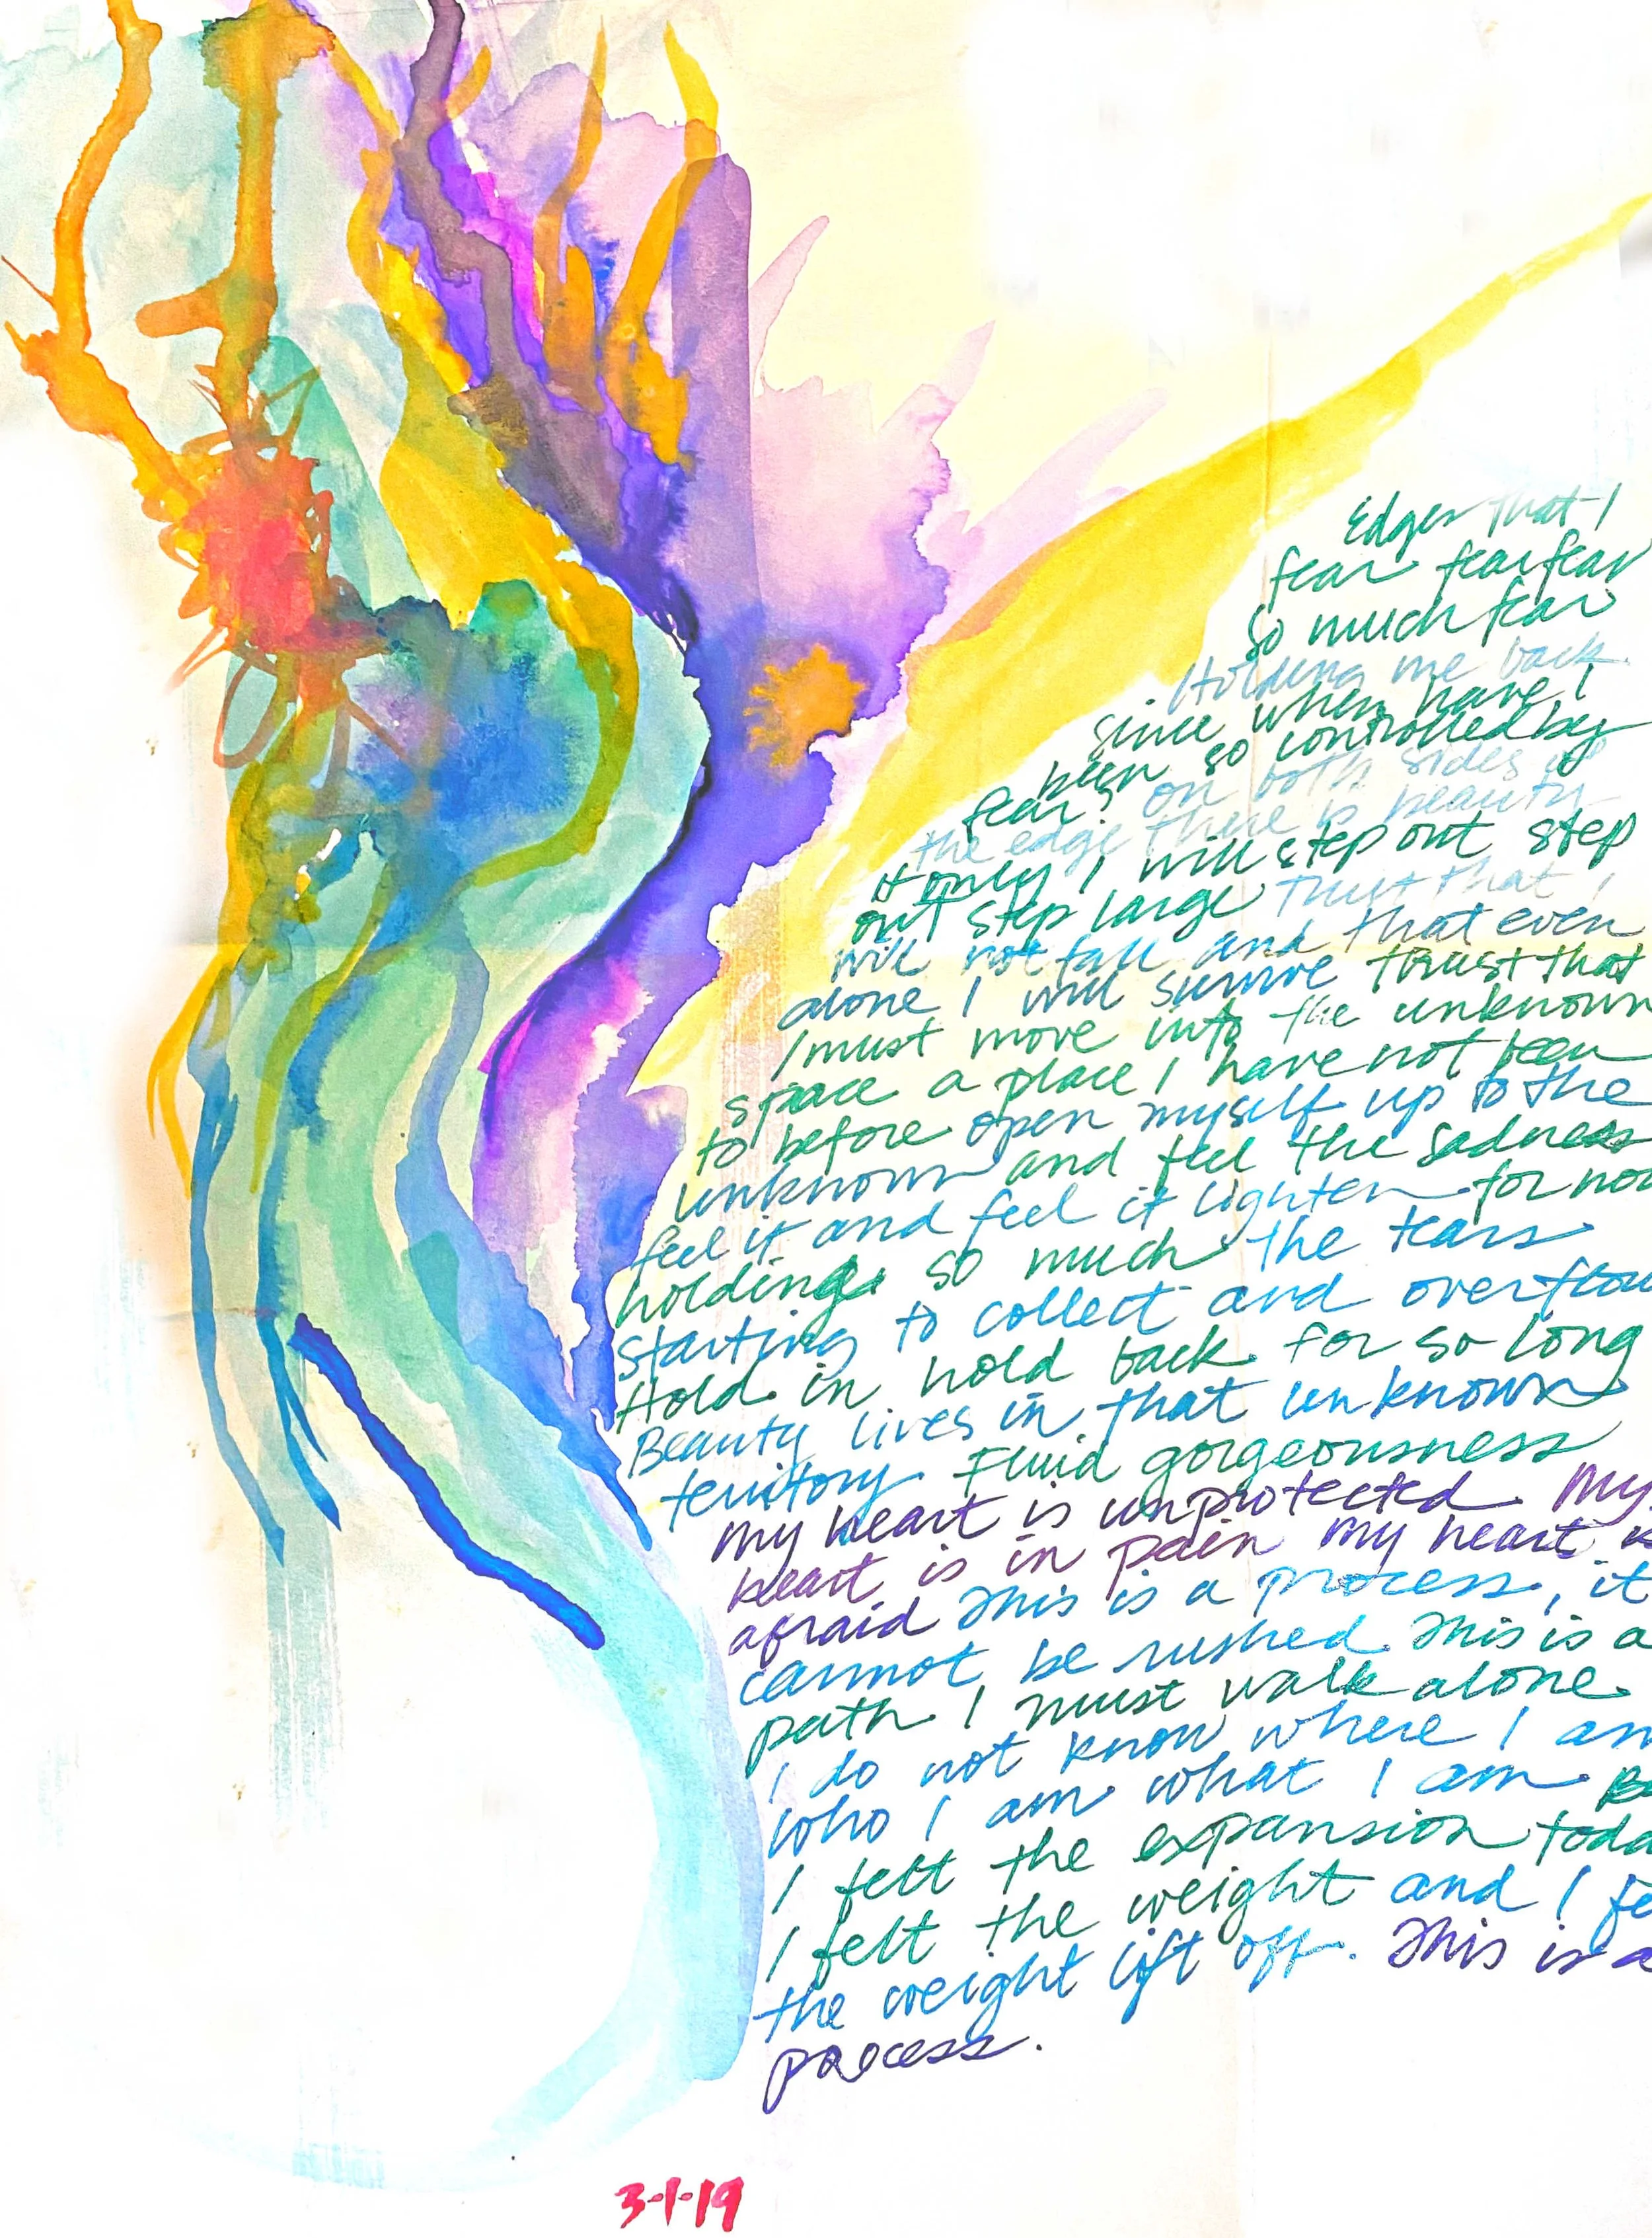 Edges that I
fear fear fear
so much fear
Holding me back
since when have I
been so controlled by
fear? on both sides of
the edge there is beauty
if only I will step out step
out step large Trust that I
will not fall and that even
alone I will survive trust that
I must move into the unknown
space a place I have not been
to before open myself up to the
unknown and feel the sadness
feel it and feel it lighten for now
holding so much the tears
starting to collect and overflow
Hold in hold back for so long
Beauty lives in that unknown
territory. Fluid gorgeousness
My heart is unprotected. My
heart is in pain My heart is
afraid This is a process, it
cannot be rushed. This is a
path I must walk alone.
I do not know where I am
who I am what I am. Bu
I felt the expansion toda
I felt the weight and I fe
the weight lift off. This is a
process.
3-1-19